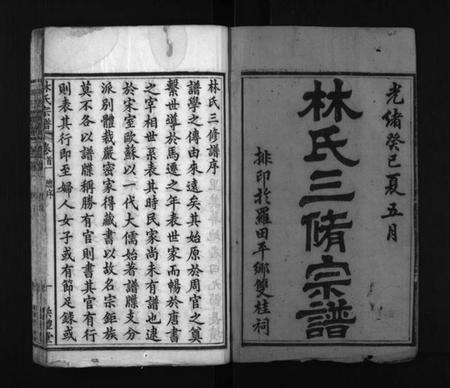 光緒癸巳夏五月
林氏三脩宗譜
排印於羅田平鄉雙桂祠
林氏三修譜序
譜學之傳由來遠矣其始原於周官之奠
繫世導於馬遷之年表世家而暢於唐書
之宰相世系表其時民家尚未有譜也逮
於宋室歐蘇以一代大儒始著譜牒支分
派別體裁嚴密家得藏書以故名宗鉅族
莫不各以譜牒稱勝有官則書其官有行
則表其行即至婦人女子或有節足錄或
林氏宗譜 卷首 序